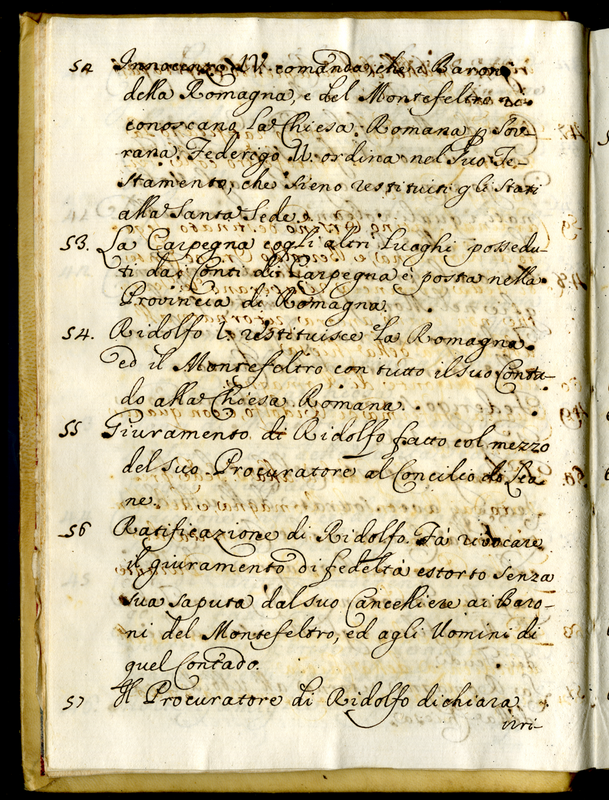 52 Innocenzo IV. comanda, che i Baroni
della Romagna, e del Montefeltro ri-
conoscano la Chiesa Romana p Sov-
rana. Federigo II. ordina nel suo Te-
stamento, che sieno restituiti gli Stati
alla Santa Sede.
53. La Carpegna cogli altri Luoghi possedu-
ti dai Conti di Carpegna è posta nella
Provincia di Romagna.
54. Ridolfo I. restituisce la Romagna
ed il Montefeltro con tutto il suo Conta-
do alla Chiesa Romana.
55 Giuramento di Ridolfo fatto col mezzo
del suo Procuratore al Concilio di Lio
ne.
56 Ratificazione di Ridolfo. Fà rivocare
il giuramento di fedeltà estorto senza
sua saputa dal suo Cancelliere ai Baro-
ni del Montefeltro, ed agli Uomini di
quel Contado.
57 Il Procuratore di Ridolfo dichiara
irri-